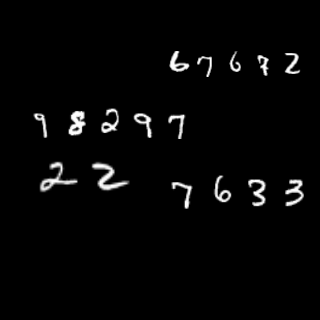 67672
98297
22
7633